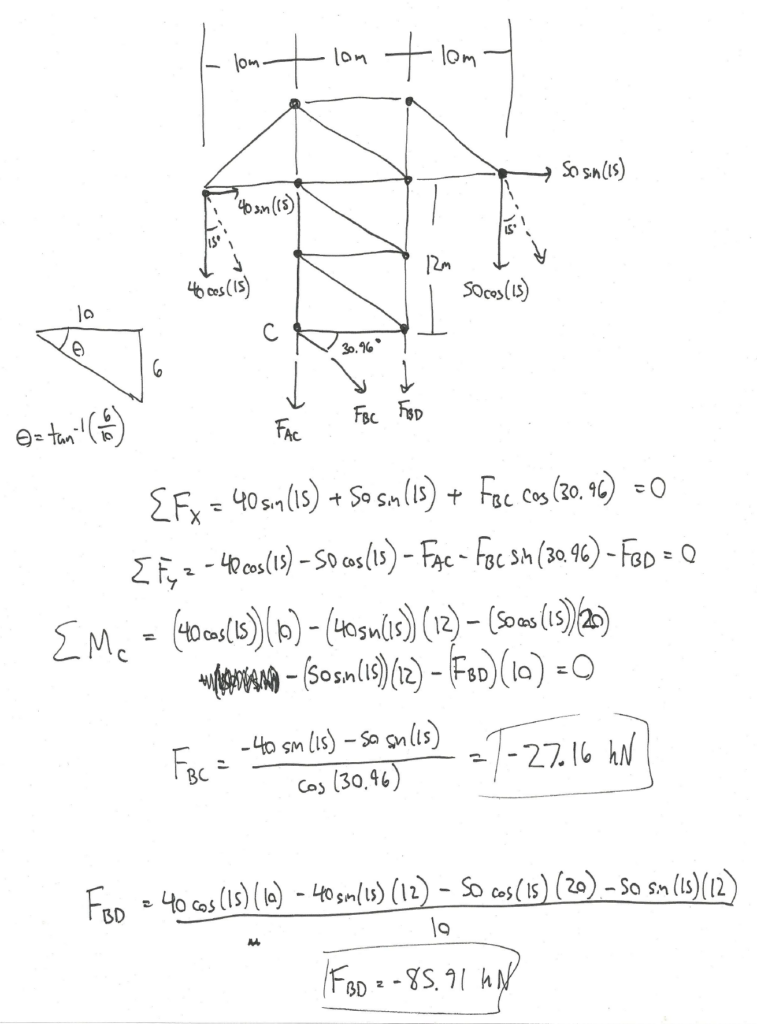 10m 10m 10m
50 sin(15)
40 sin(15)
15° 15°
12m
40 cos(15) 50 cos(15)
10
C
30.96°
θ 6
F_AC F_BC F_BD
θ = tan⁻¹(6/10)
ΣF_x = 40 sin(15) + 50 sin(15) + F_BC cos(30.96) = 0
ΣF_y = -40 cos(15) - 50 cos(15) - F_AC - F_BC sin(30.96) - F_BD = 0
ΣM_C = (40 cos(15))(10) - (40 sin(15))(12) - (50 cos(15))(20)
- (50 sin(15))(12) - (F_BD)(10) = 0
F_BC = (-40 sin(15) - 50 sin(15)) / cos(30.96) = -27.16 kN
F_BD = (40 cos(15)(10) - 40 sin(15)(12) - 50 cos(15)(20) - 50 sin(15)(12)) / 10
F_BD = -85.91 kN